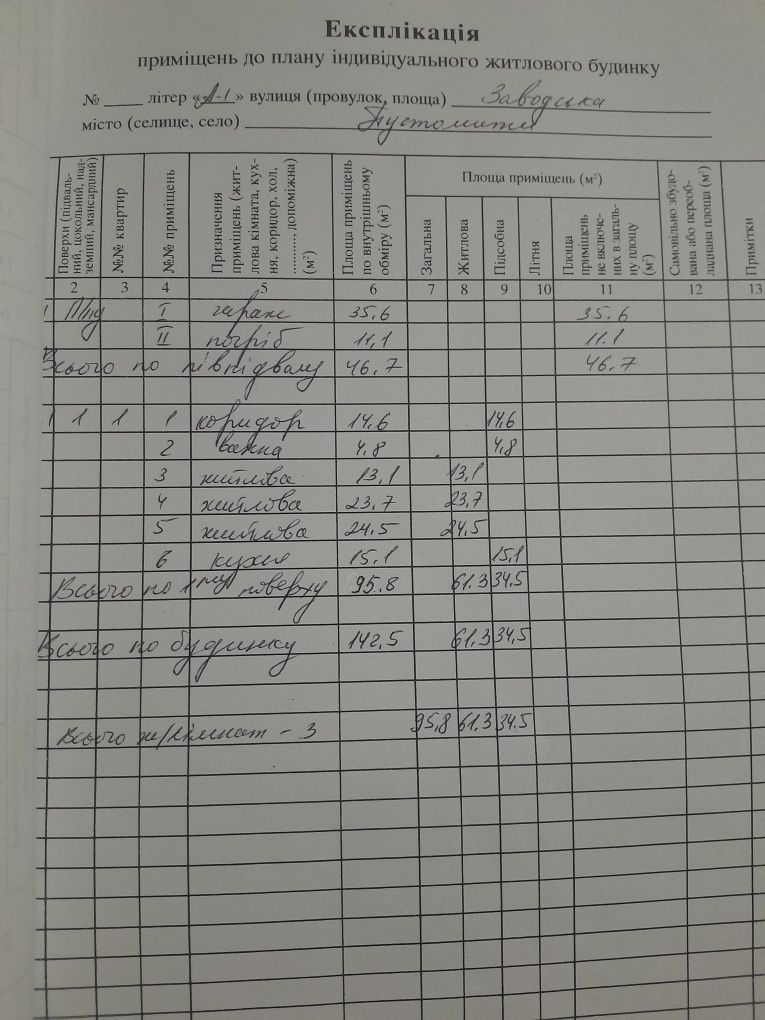 Експлікація
приміщень до плану індивідуального житлового будинку
№ літер «А-1» вулиця (провулок, площа) Заводська
місто (селище, село) Пустомити
Поверхи (підвальний, цокольний, надземний, мансардний) №№ квартир №№ приміщень Призначення приміщень (житлова кімната, кухня, коридор, хол, .........., допоміжна) (м²) Площа приміщень по внутрішньому обміру (м²) Площа приміщень (м²) Самовільно збудована або переобладнана площа (м²) Примітки
Загальна Житлова Підсобна Літня Площа приміщень не включених в загальну площу (м²)
2 3 4 5 6 7 8 9 10 11 12 13
П/пд I гараж 35.6 35.6
II погріб 11,1 11.1
Всього по півпідвалу 46.7 46.7
1 1 1 коридор 14.6 14,6
2 ванна 4.8 4.8
3 житлова 13,1 13,1
4 житлова 23,7 23,7
5 житлова 24,5 24,5
6 кухня 15.1 15,1
Всього по 1му поверху 95.8 61.3 34,5
Всього по будинку 142,5 61.3 34,5
Всього ж/кімнат - 3 95,8 61.3 34.5